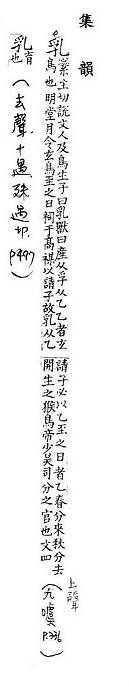 集韻
乳 蘂主切說文人及鳥生子曰乳獸曰産从孚从乙乙者玄
鳥也明堂月令玄鳥至之日祠于高禖以請子故乳从乙
請子必以乙至之日者乙春分來秋分去
開生之候鳥帝少昊司分之官也文四
上聲
(九噳
P.336
乳 育
也
(去聲.十遇.殊遇切.
P497)